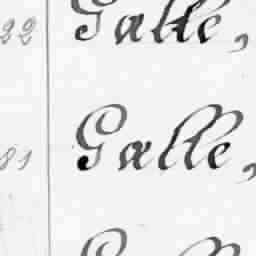 22 Galle,
81 Galle,